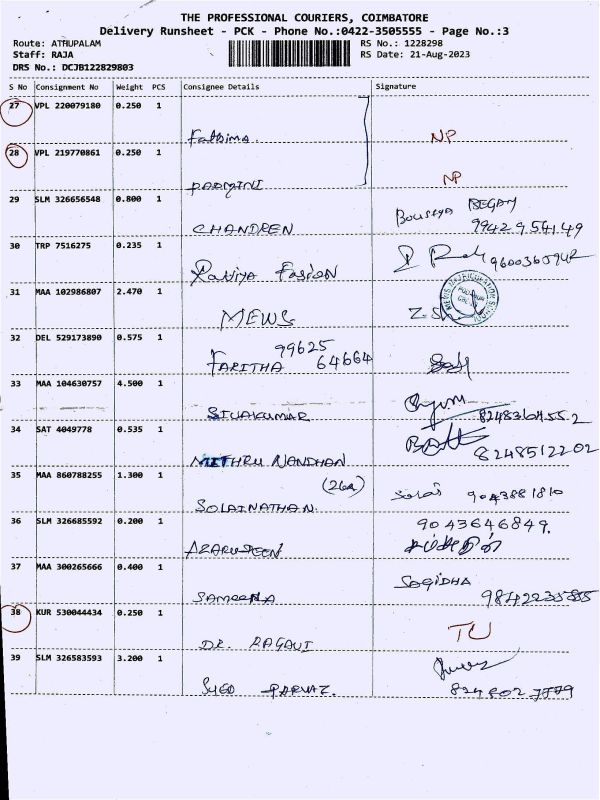 THE PROFESSIONAL COURIERS, COIMBATORE
Delivery Runsheet - PCK - Phone No.:0422-3505555 - Page No.:3
Route: ATHUPALAM RS No.: 1228298
Staff: RAJA RS Date: 21-Aug-2023
DRS No.: DCJB122829803
S No Consignment No Weight PCS Consignee Details Signature
27 VPL 220079180 0.250 1
Fathima NP
28 VPL 219770861 0.250 1
PADMINI NP
29 SLM 326656548 0.800 1 BEGAM
CHANDREN 99429 54149
30 TRP 7516275 0.235 1
Faston
31 MAA 102986807 2.470 1
MEWS
32 DEL 529173890 0.575 1 99625
FARITHA 64664
33 MAA 104630757 4.500 1
SIVAKUMAR
34 SAT 4049778 0.535 1
MITHRU NANDHAN 8248512202
35 MAA 860788255 1.300 1
SOLAINATHAN 9043881810
36 SLM 326685592 0.200 1 9043646849.
37 MAA 300265666 0.400 1 SAGIDHA
SAMEENA
38 KUR 530044434 0.250 1
DR. RAGAVI TU
39 SLM 326583593 3.200 1
SYED PARVAZ.